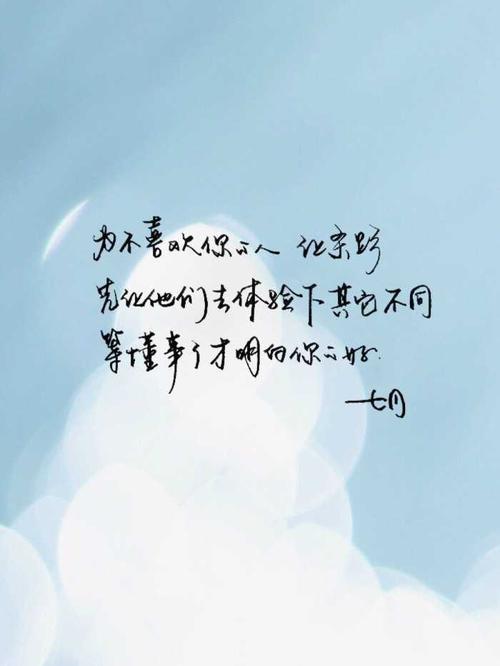 为不喜欢你的人 让条路
先让他们去体验下其它不同
等懂事了才明白你的好.
—七月